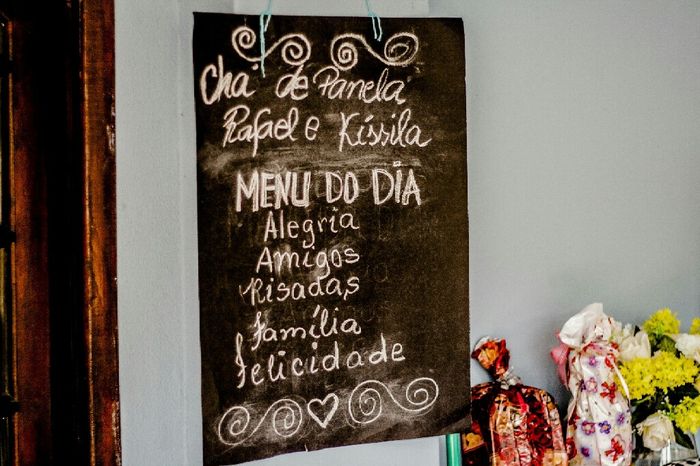 Chá de Panela
Rafael e Kíssila
MENU DO DIA
Alegria
Amigos
Risadas
família
felicidade